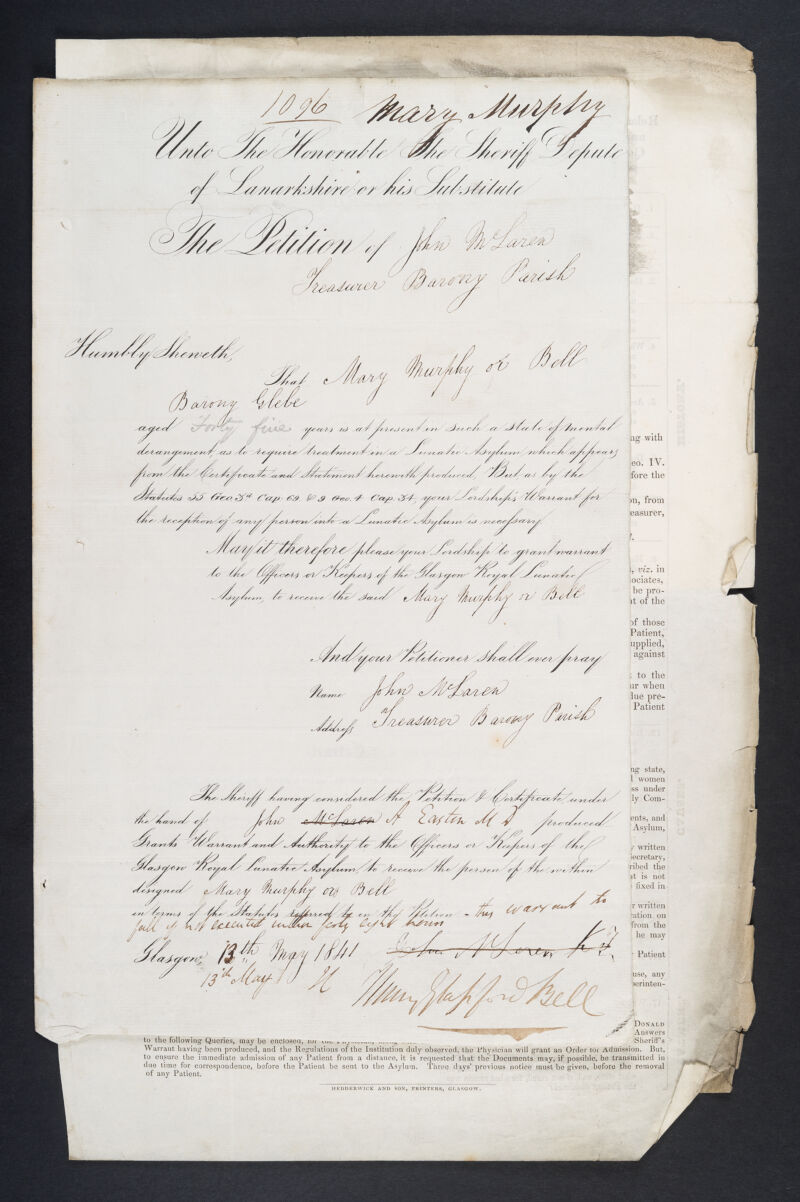 1096 Mary Murphy
Unto The Honorable The Sheriff Depute
of Lanarkshire or his Substitute
The Petition of John McLaren
Treasurer Barony Parish
Humbly Sheweth,
That Mary Murphy or Bell
Barony Glebe
aged Forty five years is at present in such a state of mental
derangement, as to require treatment in a Lunatic Asylum, which appears
from the Certificate and Statement herewith produced, But as by the
Statutes 55 Geo 3d Cap. 69 & 9 Geo. 4 Cap. 34, your Lordship's Warrant for
the reception of any person into a Lunatic Asylum is necessary
May it therefore please your Lordship to grant warrant
to the Officers or Keepers of the Glasgow Royal Lunatic
Asylum, to receive the said Mary Murphy or Bell
And your Petitioner shall ever pray
Name John McLaren
Address Treasurer Barony Parish
The Sheriff having considered the Petition & Certificate under
the hand of John McLaren A Easton M D produced
Grants Warrant and Authority to the Officers or Keepers of the
Glasgow Royal Lunatic Asylum, to receive the person of the within
designed Mary Murphy or Bell
in terms of the Statutes referred to in the Petition - this warrant to
fall if not executed within forty eight hours
Glasgow, 13th May 1841 John McLaren
13th May Henry Glassford Bell
ng with
eo. IV.
fore the
on, from
easurer,
, viz. in
ociates,
be pro-
nt of the
of those
Patient,
upplied,
against
to the
ur when
due pre-
Patient
ng state,
women
ss under
ly Com-
ents, and
Asylum,
written
ecretary,
ribed the
at is not
fixed in
r written
ation on
from the
he may
Patient
use, any
perinten-
DONALD
Answers
Sheriff's
to the following Queries, may be enclosed, for the Physician,
Warrant having been produced, and the Regulations of the Institution duly observed, the Physician will grant an Order for Admission. But,
to ensure the immediate admission of any Patient from a distance, it is requested that the Documents may, if possible, be transmitted in
due time for correspondence, before the Patient be sent to the Asylum. Three days' previous notice must be given, before the removal
of any Patient.
HEDDERWICK AND SON, PRINTERS, GLASGOW.